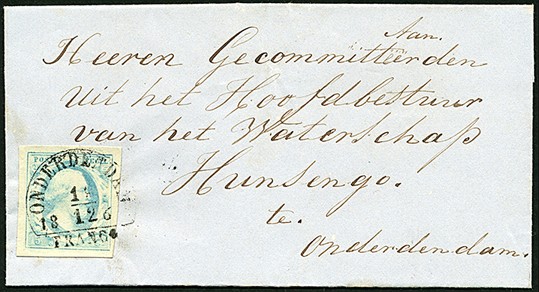 Aan.
Heeren Gecommitteerden
uit het Hoofdbestuur
van het Waterschap
Hunsengo.
te.
Onderdendam.
ONDERDENDAM
18 12 6
FRANCO